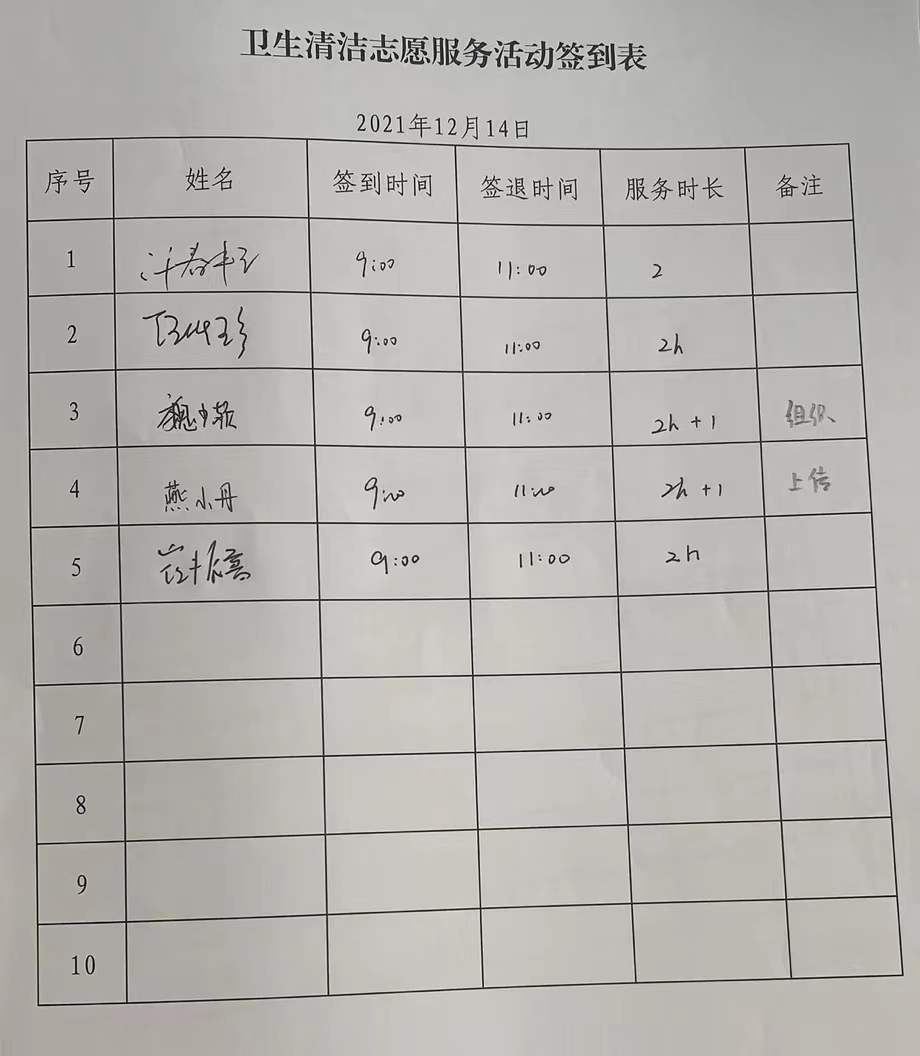 卫生清洁志愿服务活动签到表
2021年12月14日
序号 姓名 签到时间 签退时间 服务时长 备注
1 9:00 11:00 2
2 9:00 11:00 2h
3 9:00 11:00 2h+1 组织、
4 燕小丹 9:00 11:00 2h+1 上传
5 9:00 11:00 2h
6
7
8
9
10